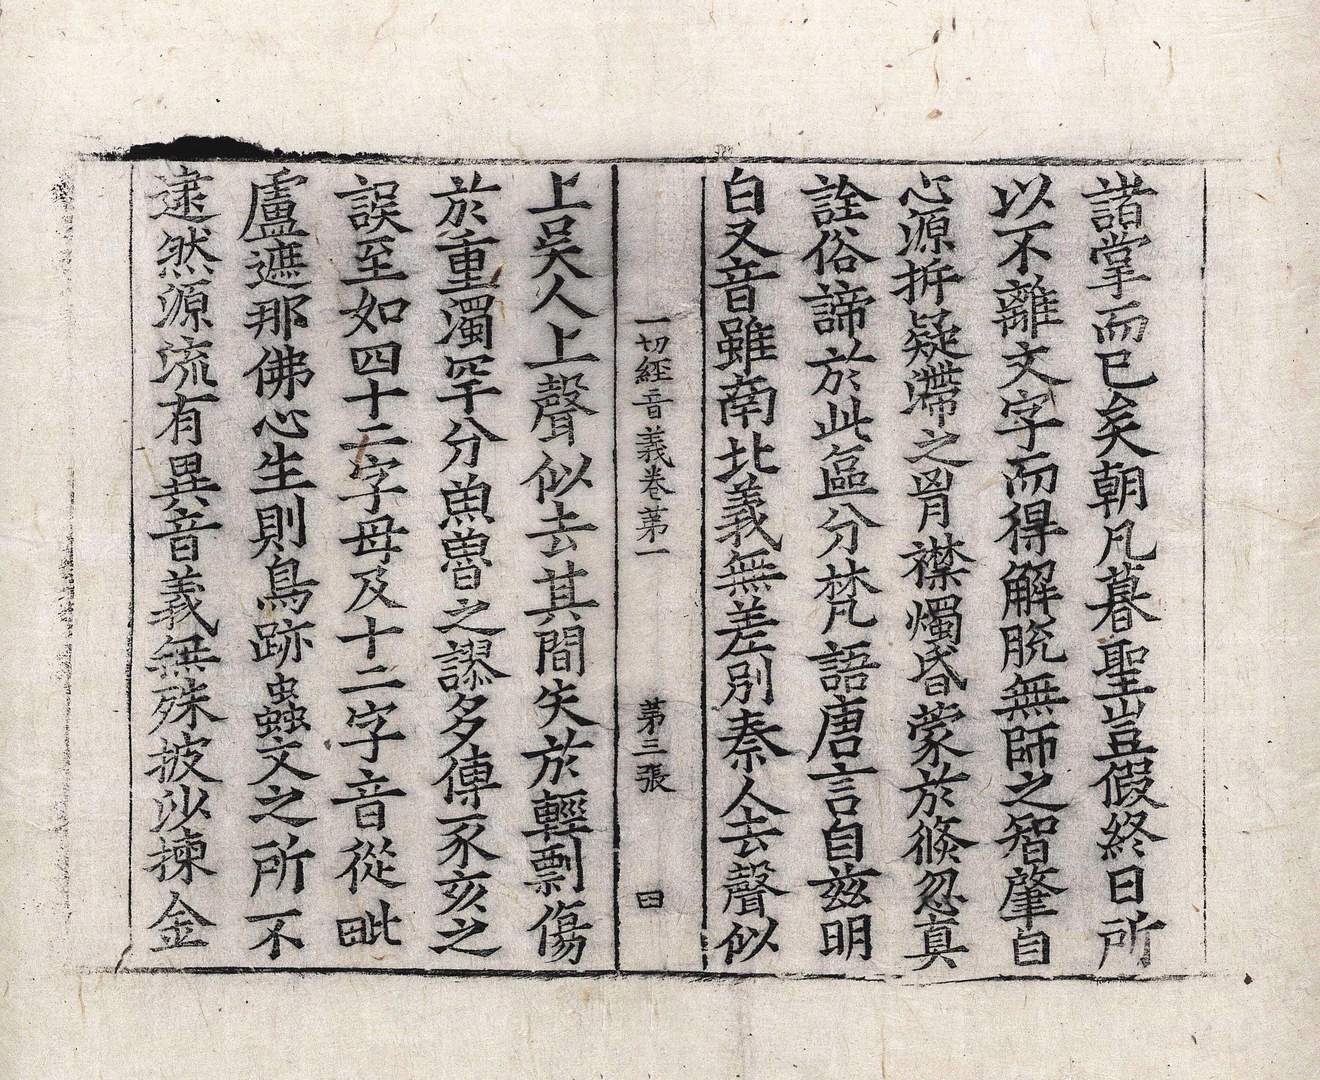 諸掌而已矣朝凡暮聖豈假終日所
以不離文字而得解脫無師之智肇自
心源拆疑滯之胷襟燭昏蒙於倏忽真
詮俗諦於此區分梵語唐言自茲明
白又音雖南北義無差別秦人去聲似
一切經音義卷第一 第三張 曰
上吴人上聲似去其間失於輕剽傷
於重濁罕分魚魯之謬多傳豕亥之
誤至如四十二字母及十二字音從毗
盧遮那佛心生則鳥跡蟲文之所不
逮然源流有異音義無殊披沙揀金